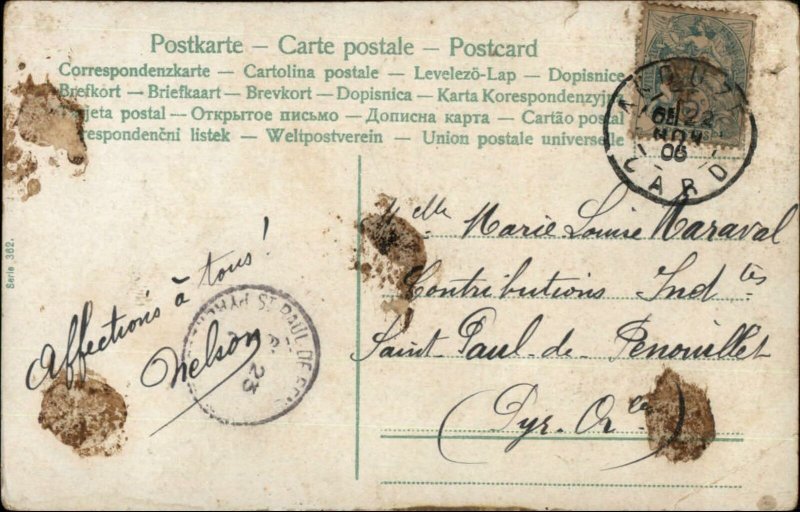 Postkarte – Carte postale – Postcard
Correspondenzkarte – Cartolina postale – Levelezö-Lap – Dopisnice
Brefkort – Briefkaart – Brevkort – Dopisnica – Karta Korespondenzyj
jeta postal – Открытое письмо – Дописна карта – Cartão postal
respondenční listek – Weltpostverein – Union postale universelle
22
NOV
06
GARD
Melle Marie Louise Maraval
Contributions Indtes
Saint-Paul-de-Fenouillet
(Pyr. Orles)
Affections à tous!
Nelson
ST PAUL DE
23
Serie 362.